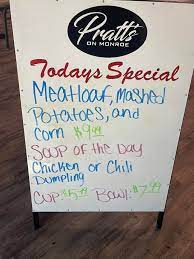 Pratt's
ON MONROE
Todays Special
Meatloaf, Mashed
Potatoes, and
Corn $9.99
Soup of the Day
Chicken or Chili
Dumpling
Cup: $5.99 Bowl: $7.99